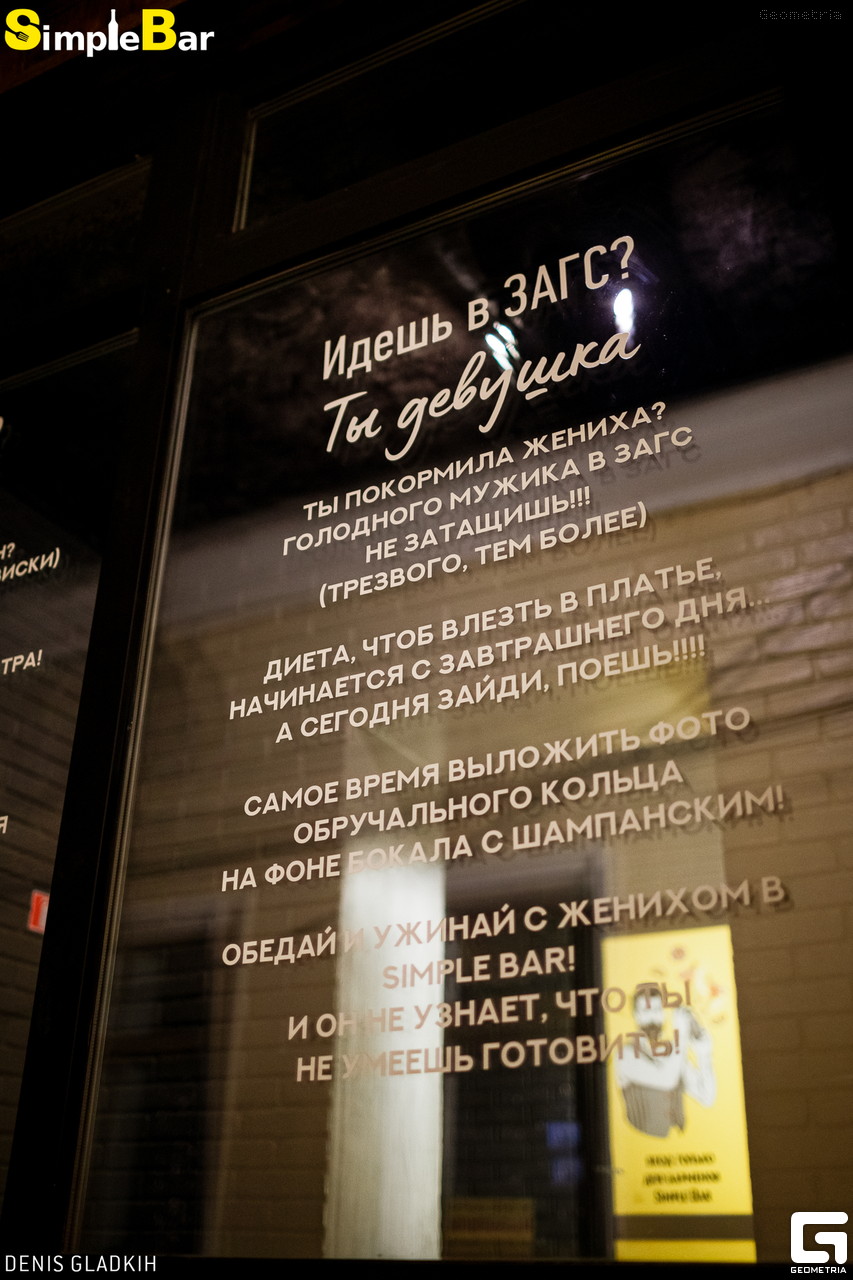 SimpleBar
Geometria
Идешь в ЗАГС?
Ты девушка
ТЫ ПОКОРМИЛА ЖЕНИХА?
ГОЛОДНОГО МУЖИКА В ЗАГС
НЕ ЗАТАЩИШЬ!!!
(ТРЕЗВОГО, ТЕМ БОЛЕЕ)
ДИЕТА, ЧТОБ ВЛЕЗТЬ В ПЛАТЬЕ,
НАЧИНАЕТСЯ С ЗАВТРАШНЕГО ДНЯ...
А СЕГОДНЯ ЗАЙДИ, ПОЕШЬ!!!!
САМОЕ ВРЕМЯ ВЫЛОЖИТЬ ФОТО
ОБРУЧАЛЬНОГО КОЛЬЦА
НА ФОНЕ БОКАЛА С ШАМПАНСКИМ!
ОБЕДАЙ И УЖИНАЙ С ЖЕНИХОМ В
SIMPLE BAR!
И ОН НЕ УЗНАЕТ, ЧТО ТЫ
НЕ УМЕЕШЬ ГОТОВИТЬ!
ВХОД ТОЛЬКО
ДЛЯ БАРМЕНОВ
SIMPLE BAR
DENIS GLADKIH
GEOMETRIA